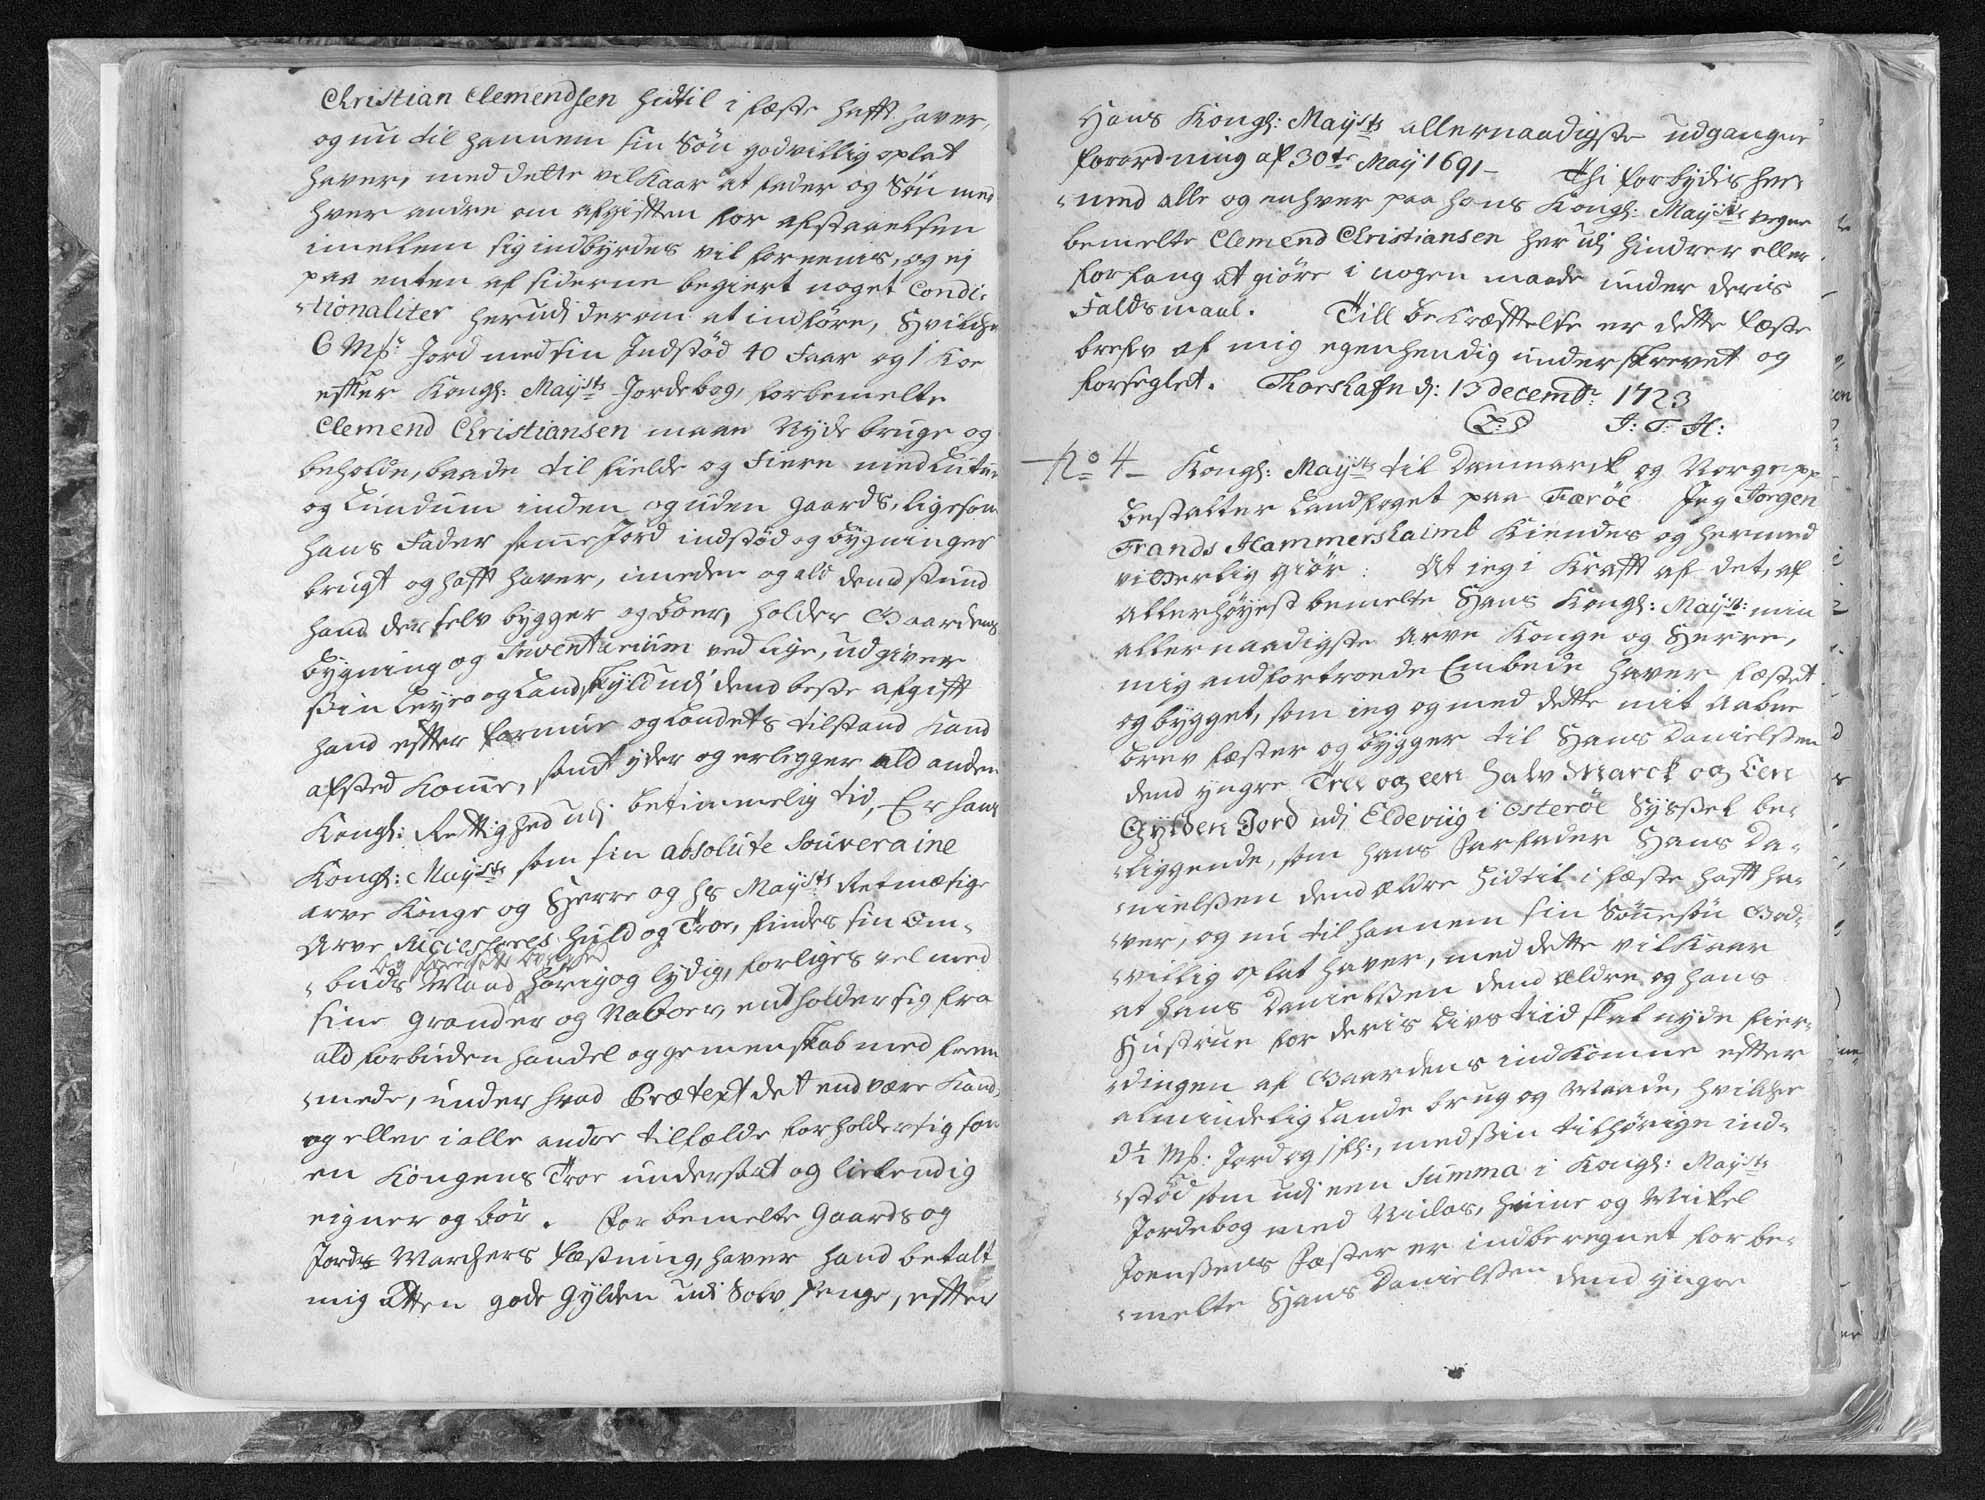 Christian Clemendsen hidtil i fæste hafft haver,
og nu til hannem sin Søn godvillig oplat
haver, med dette vilkaar at fader og Søn med
hver andre om afgifften for afstaaelsen
imellem sig indbyrdes vil foreenis, og ej
paa enten af siderne begiert noget Condi-
tionaliter herudj derom at indføre, Hvilche
6 Mk: Jord med sin Indstød 40 Faar og 1 Koe
efter Kongl: Maysts Jordebog, forbemelte
Clemend Christiansen maae Nyde bruge og
beholde, baade til fielde og Fiere med Lutum
og Lundum inden og uden gaards, ligesom
hans Fader samme Jord indstød og bygninger
brugt og hafft haver, imeden og ald dend stund
hand der selv bygger og boer, holder Gaardens
bygning og Inventarium ved lige, udgiver
sin Leye og Landskyld udj dend beste afgifft
hand effter formue og Landets tilstand kand
afsted komme, samt yder og erlegger ald anden
Kongl: Rettighed udj betimmelig tid, Er hans
Kongl: Maysts som sin absolute Souveraine
arve Konge og Herre og hs Maysts Retmæsige
Arve Successores huld og Troe, findes sin Om-
og foresatte Øvrighed
buds Mand hørig og lydig, forliges vel med
sine grander og Naboer, entholder sig fra
ald forbuden handel og gemenskab med frem
mede, under hvad Prætext det end være kand,
og eller i alle andre tilfælde forholder sig som
en Kongens Troe undersaat og lietendig
eigner og bør. For bemelte gaards og
Jords Marchers Fæstning, haver hand betalt
mig Otten gode Gylden udj Sølv Penge, effter
Hans Kongl: Maysts allernaadigste udgangne
forordning af 30te Maij 1691 - Thi forbydis her-
med alle og enhver paa hans Kongl: Maysts vegne
bemelte Clemend Christiansen her udj hindrer eller
forfang at giøre i nogen maade under deris
Faldsmaal. Till bekræfftelse er dette fæste
brefv af mig egenhendig underskrevet og
forseglet. Thorshafn d: 13 decembr: 1723
L: S J: F: H:
No 4 Kongl: Maysts til Danmarck og Norge pp
bestalter Landfoget paa Færöe Jeg Jörgen
Frands Hammershaimb Kiendes og hermed
vitterlig giør: At ieg i Krafft af det, af
Allerhøyest bemelte Hans Kongl: Mayst: min
allernaadigste Arve Konge og Herre,
mig andfortroede Embede haver fæstet
og bygget, som ieg og med dette mit Aabne
brev fæster og bygger til Hans Danielssen
dend yngre Tre og een halv Marck og Een
Gylden Jord udj Eldeviig i Osteröe Syssel be-
liggende, som hans Farfader Hans Da-
nielssen dend ældre hidtil i fæste hafft ha-
ver, og nu til hannem sin Sønnesøn God-
villig oplat haver, med dette vilkaar
at hans Danielssen dend ældre og hans
Hustrue for deris Livs tiid skal nyde fier-
dingen af Gaardens indkomme effter
almindelig Lands brug og Maade, hvilche
3½ Mk: Jord og 1 fl:, med sin tilhørige ind-
stød som udj een Summa i Kongl: Maysts
Jordebog med Niclas, Heine og Mickel
Joenssens Fæster er indberegnet forbe-
melte Hans Danielssen dend yngre